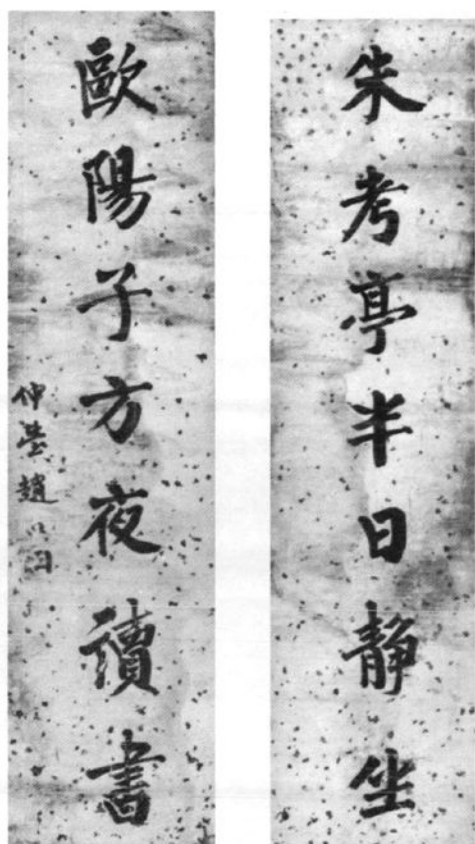 朱考亭半日静坐
歐陽子方夜讀書
趙